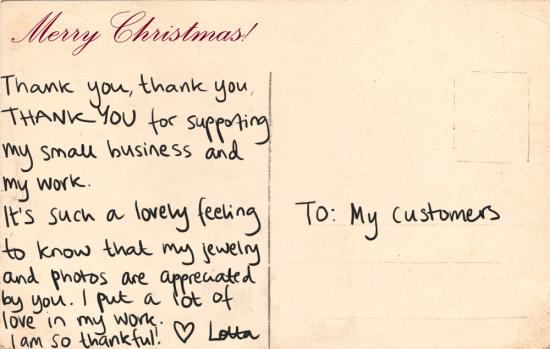 Merry Christmas!
Thank you, thank you,
THANK YOU for supporting
my small business and
my work.
It's such a lovely feeling
to know that my jewelry
and photos are appreciated
by you. I put a lot of
love in my work.
I am so thankful! ♡ Lotta
TO: My customers